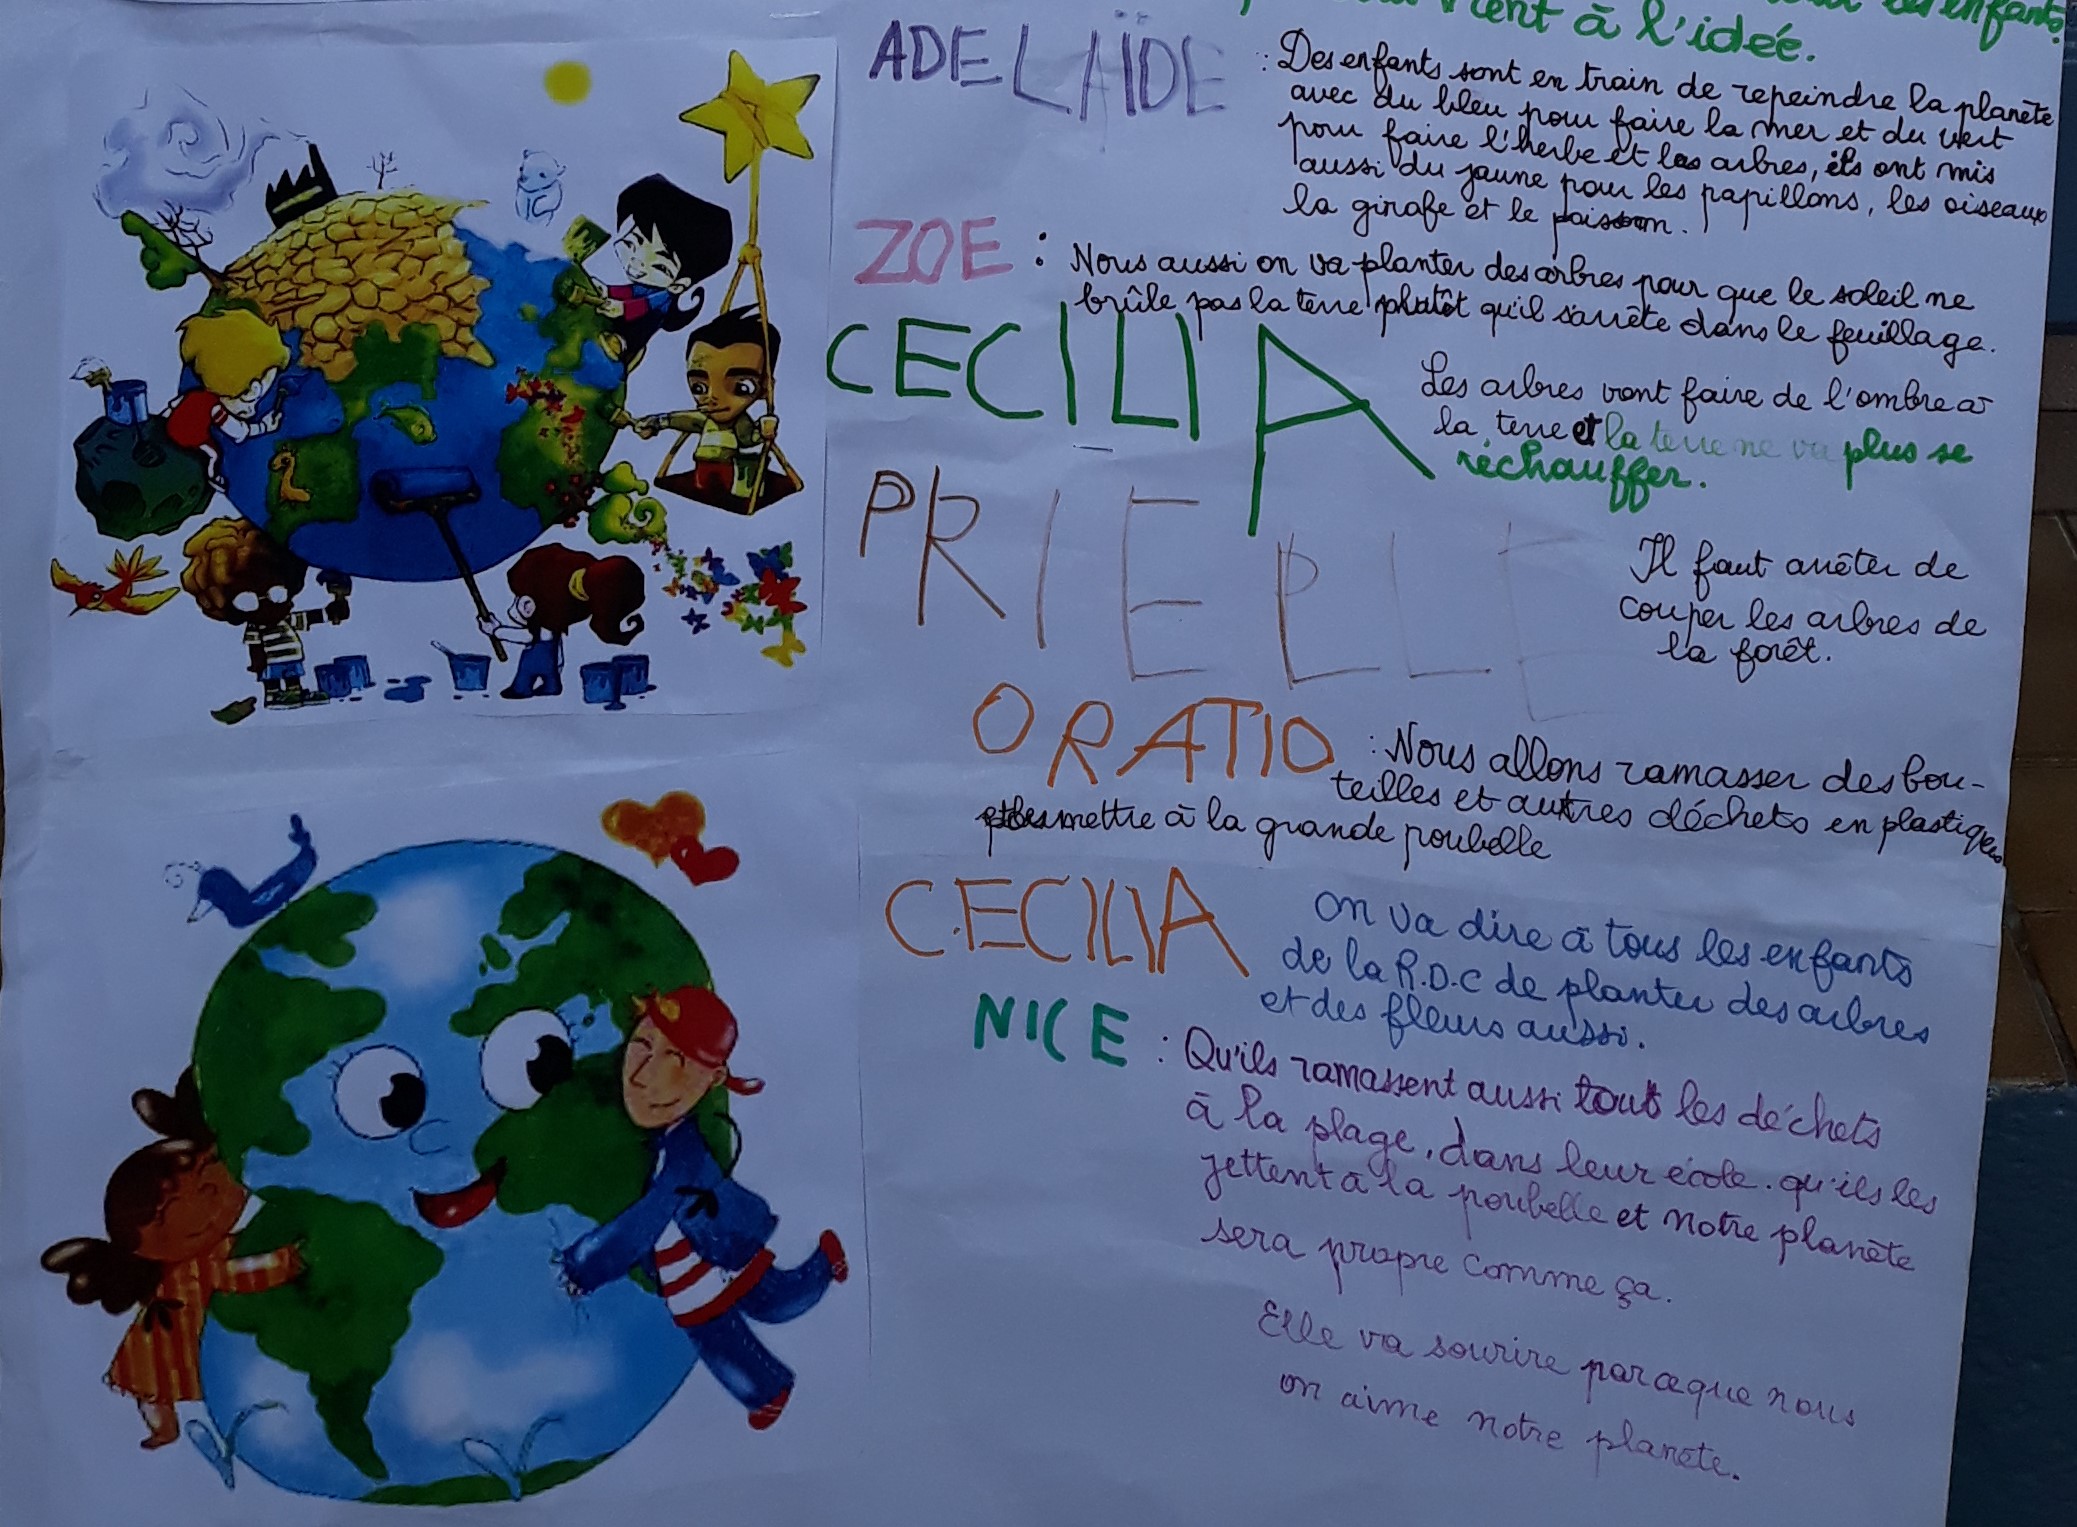 les enfants.
vient à l'idée.
ADELAÏDE : Des enfants sont en train de repeindre la planète
avec du bleu pour faire la mer et du vert
pour faire l'herbe et les arbres, ils ont mis
aussi du jaune pour les papillons, les oiseaux
la girafe et le poisson.
ZOE : Nous aussi on va planter des arbres pour que le soleil ne
brûle pas la terre plutôt qu'il s'arrête dans le feuillage.
CECILIA Les arbres vont faire de l'ombre à
la terre et la terre ne va plus se
réchauffer.
PRIELLE Il faut arrêter de
couper les arbres de
la forêt.
ORATIO : Nous allons ramasser des bou-
teilles et autres déchets en plastiques
mettre à la grande poubelle
CECILIA on va dire à tous les enfants
de la R.D.C de planter des arbres
et des fleurs aussi.
NICE : Qu'ils ramassent aussi tout les déchets
à la plage, dans leur école. qu'ils les
jettent à la poubelle et notre planète
sera propre comme ça.
Elle va sourire parceque nous
on aime notre planète.